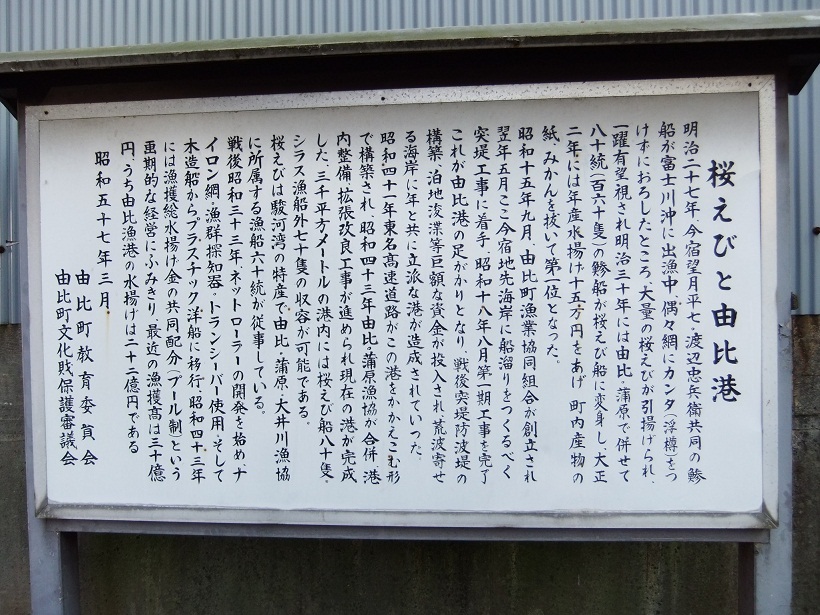 桜えびと由比港
明治二十七年、今宿望月平七・渡辺忠兵衛共同の鯵
船が富士川沖に出漁中、偶々網にカンタ(浮樽)をつ
けずにおろしたところ、大量の桜えびが引揚げられ、
一躍有望視され明治三十年には由比・蒲原で併せて
八十統(百六十隻)の鯵船が桜えび船に変身し、大正
二年には年産水揚げ十五万円をあげ 町内産物の
紙、みかんを抜いて第一位となった。
昭和十五年九月、由比町漁業協同組合が創立され
翌年五月ここ今宿地先海岸に船溜りをつくるべく
突堤工事に着手、昭和十八年八月第一期工事を完了
これが由比港の足がかりとなり、戦後突堤防波堤の
構築、泊地浚渫等巨額な資金が投入され、荒波寄せ
る海岸に年と共に立派な港が造成されていった。
昭和四十一年東名高速道路がこの港をかかえこむ形
で構築され、昭和四十三年由比・蒲原漁協が合併、港
内整備・拡張改良工事が進められ現在の港が完成
した、三千平方メートルの港内には桜えび船八十隻・
シラス漁船外七十隻の収容が可能である。
桜えびは駿河湾の特産で由比・蒲原・大井川漁協
に所属する漁船六十統が従事している。
戦後昭和三十三年、ネットローラーの開発を始め、ナ
イロン網・漁群探知器・トランシーバー使用・そして
木造船からプラスチック洋船に移行・昭和四十三年
には漁獲総水揚げ金の共同配分(プール制)という
画期的な経営にふみきり 最近の漁獲高は三十億
円、うち由比漁港の水揚げは二十二億円である
昭和五十七年三月
由比町教育委員会
由比町文化財保護審議会